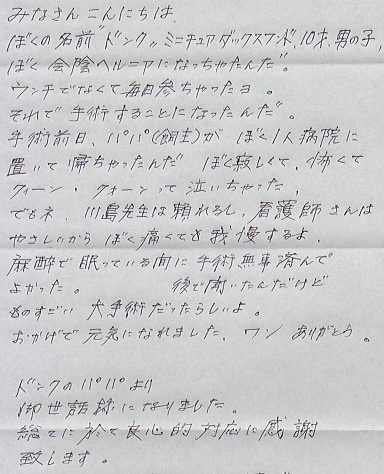 みなさんこんにちは、
ぼくの名前“ドンク„ミニチュアダックスフンド、10才、男の子、
ぼく会陰ヘルニアになっちゃたんだ。
ウンチでなくて毎日参ちゃったヨ。
それで手術することになったんだ。
手術前日、パパ(飼主)がぼく1人病院に
置いて帰ちゃったんだ ぼく寂しくて、怖くて
クィーン・クォーンって泣いちゃった、
でもネ、川島先生は頼れるし、看護師さんは
やさしいからぼく痛くても我慢するよ、
麻酔で眠っている間に手術無事済んで
よかった。 後で聞いたんだけど
ものすごい大手術だったらしいよ。
おかげで元気になれました、ワン ありがとう。
ドンクのパパより
御世話様になりました。
総てに於て良心的対応に感謝
致します。